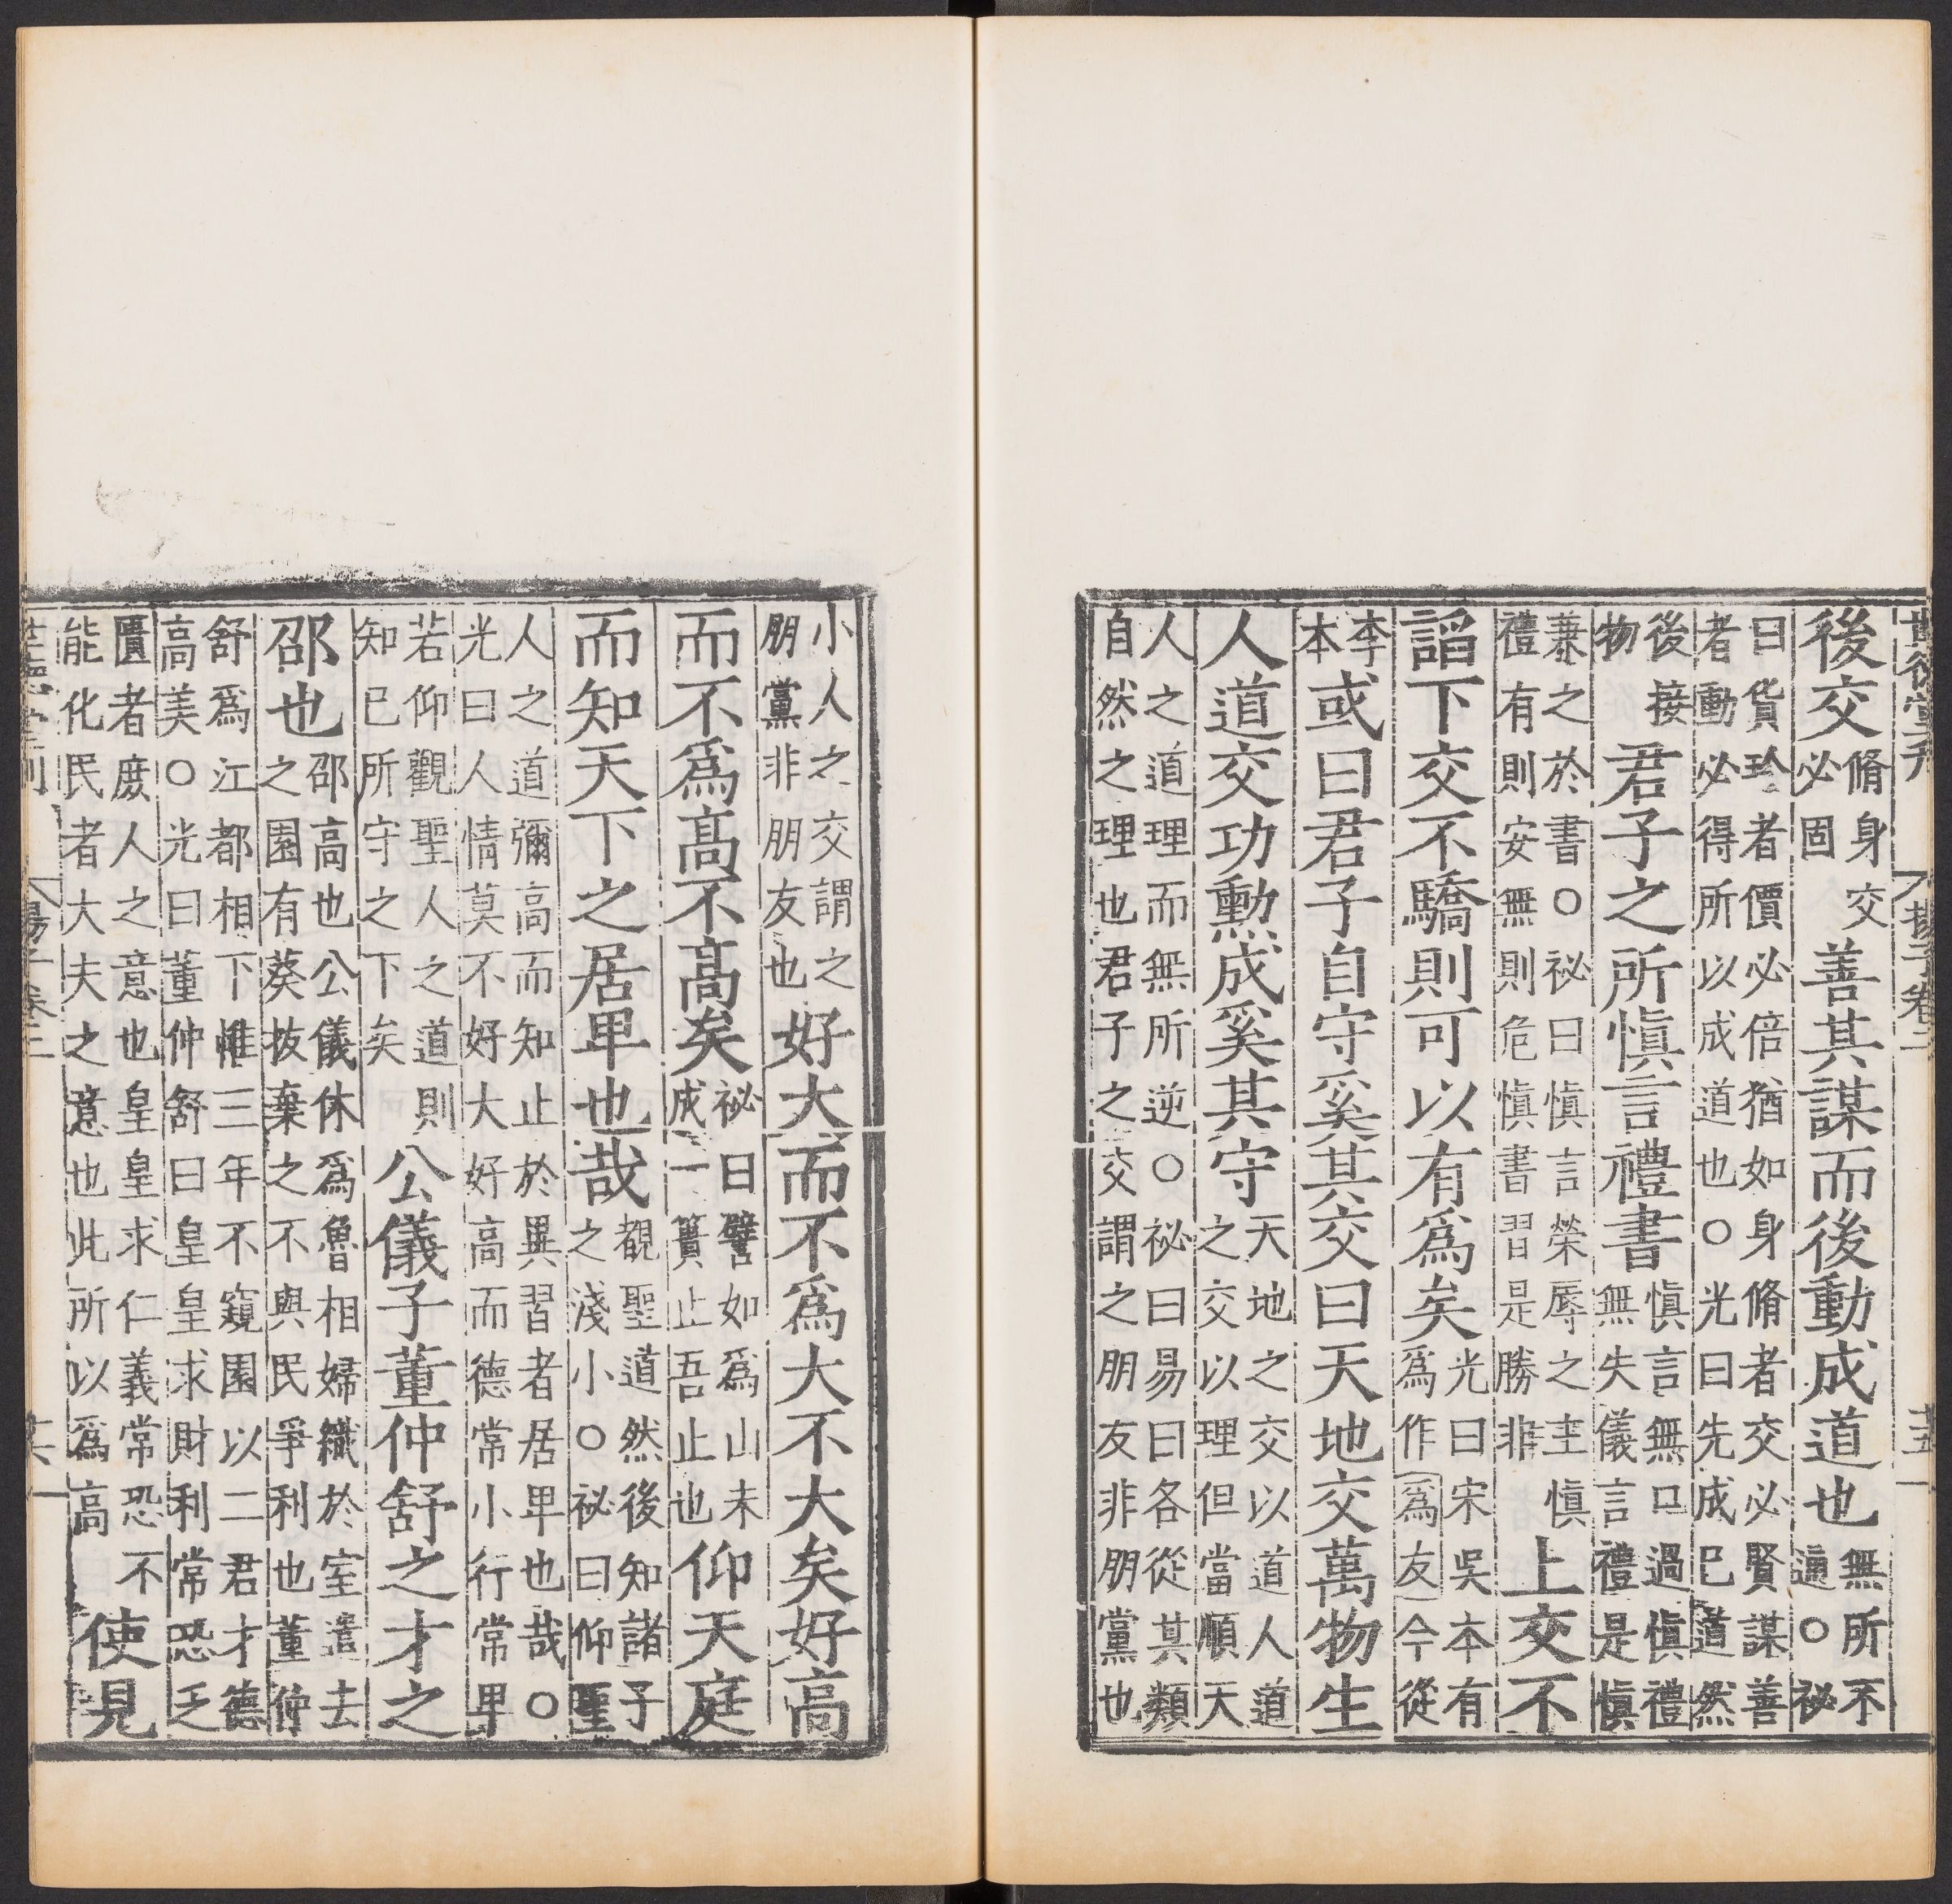 世德堂刊 揚子卷三 十五
後交脩身交必固善其謀而後動成道也無所不適○祕
曰貨珍者價必倍猶如身脩者交必賢謀善
者動必得所以成道也○光曰先成已道然
後接物君子之所慎言禮書慎言無口過慎禮無失儀言禮是慎
兼之於書○祕曰慎言榮辱之主慎禮有則安無則危慎書習是勝非上交不
謟下交不驕則可以有爲矣光曰宋吳本有爲作爲友今從
李本或曰君子自守奚其交曰天地交萬物生
人道交功勳成奚其守天地之交以道人道之交以理但當順天
人之道理而無所逆○祕曰易曰各從其類
自然之理也君子之交謂之朋友非朋黨也
小人之交謂之朋黨非朋友也好大而不爲大不大矣好高
而不爲高不高矣祕曰譬如爲山未成一簣止吾止也仰天庭
而知天下之居卑也哉覩聖道然後知諸子之淺小○祕曰仰聖
人之道彌高而知止於異習者居卑也哉○
光曰人情莫不好大好高而德常小行常卑
若仰觀聖人之道則知已所守之下矣公儀子董仲舒之才之
邵也邵高也公儀休爲魯相婦織於室遣去之園有葵拔棄之不與民爭利也董仲
舒爲江都相下帷三年不窺園以二君才德
高美○光曰董仲舒曰皇皇求財利常恐乏
匱者庶人之意也皇皇求仁義常恐不能化民者大夫之意也此所以爲高使見
世德堂刊 揚子卷三 十六